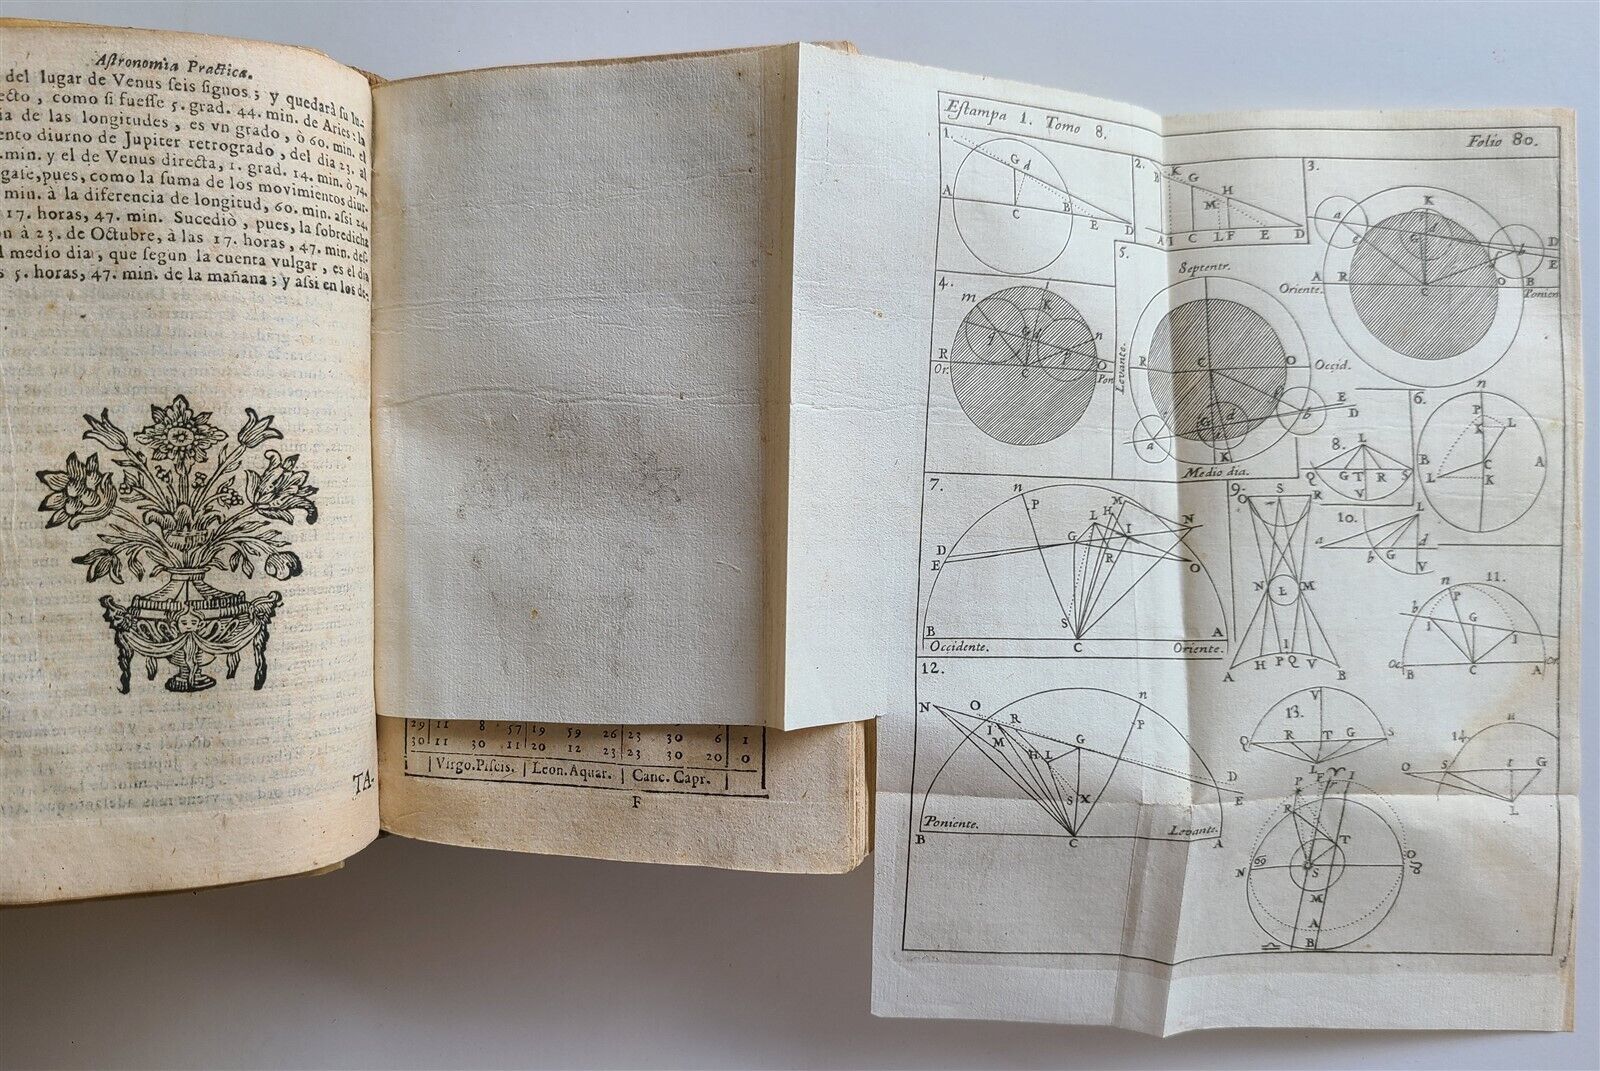 Aſtronomia Practica.
del lugar de Venus ſeis ſignos; y quedarà ſu lu-
ecto, como ſi fueſſe 5. grad. 44. min. de Aries: la
ia de las longitudes, es vn grado, ò 60. min. el
ento diurno de Jupiter retrogrado, del dia 23. al
.min. y el de Venus directa, 1. grad. 14. min. ò 74.
gaſe, pues, como la ſuma de los movimientos diur-
min. à la diferencia de longitud, 60. min. aſsi 24.
17. horas, 47. min. Sucediò, pues, la ſobredicha
on à 23. de Octubre, à las 17. horas, 47. min. deſ-
l medio dia, que ſegun la cuenta vulgar, es el dia
s 5. horas, 47. min. de la mañana; y aſsi en los de-
TA-
29 11 8 57 19 59 26 23 30 6 1
30 11 30 11 20 12 23 23 30 20 0
Virgo.Piſcis. Leon.Aquar. Canc. Capr.
F
Eſtampa 1. Tomo 8. Folio 80.
1.
G d
A C B E D
2.
B K G H
M
A I C L F E D
3.
K
a d b D
G E
A R C O B
Oriente. Ponien
4.
m l K
G d n
R C O
Or. Pon
5.
Septentr.
Levante.
R C O Occid.
E
a G d b D
K
Medio dia.
6.
n
P
K L
B C A
L K
7.
n P M
L H I N
D G
E R O
S
B C A
Occidente. Oriente.
8.
L
Q G T R S
V
9.
Q S R
N L M
I
A H P Q V B
10.
L
a d
b G V
11.
n
b P
I G I
Oc. Or.
B C A
12.
N O R n P
I M G
H L D
S X E
Poniente. Levante.
B C A
13.
V
Q R T G S
L
14.
H
O S t G
L
P F I
R T
N S O
M
A
B